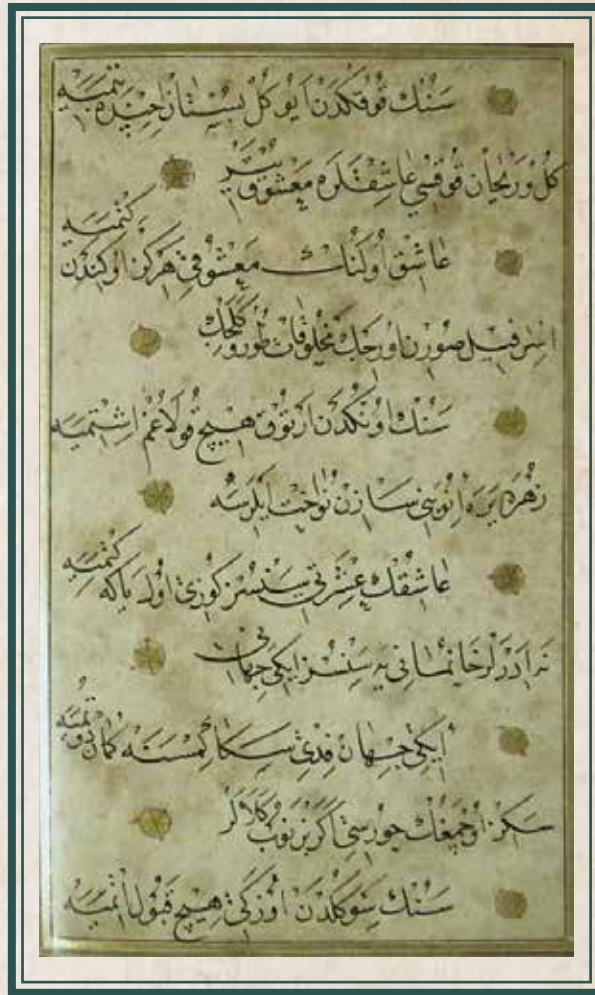 سنك قوقكدن ايو كل بستان اچنده بتميه
كل و ريحان قوقسي عاشقلره معشوق يتر
عاشق اولنك معشوقي هركز اوكندن كتميه
اسرفيل صورن اورجك مخلوقات طورو كلجك
سنك اونكدن ارتوق هيچ قولاغم اشتميه
زهره يره انوسي سازن نواخت ايلرسه
عاشقك عشرتي سنسز كوزي اول ياكه كتميه
نه ادرلر خانماني يه سنسز ايكي جهاني
ايكي جهان فدي سكا كمسنه كمان دوتميه
سكز اوچمغك حورسي اكر بزنوب كلالر
سنك سوكلدن اوزكي هيچ قبول اتميه